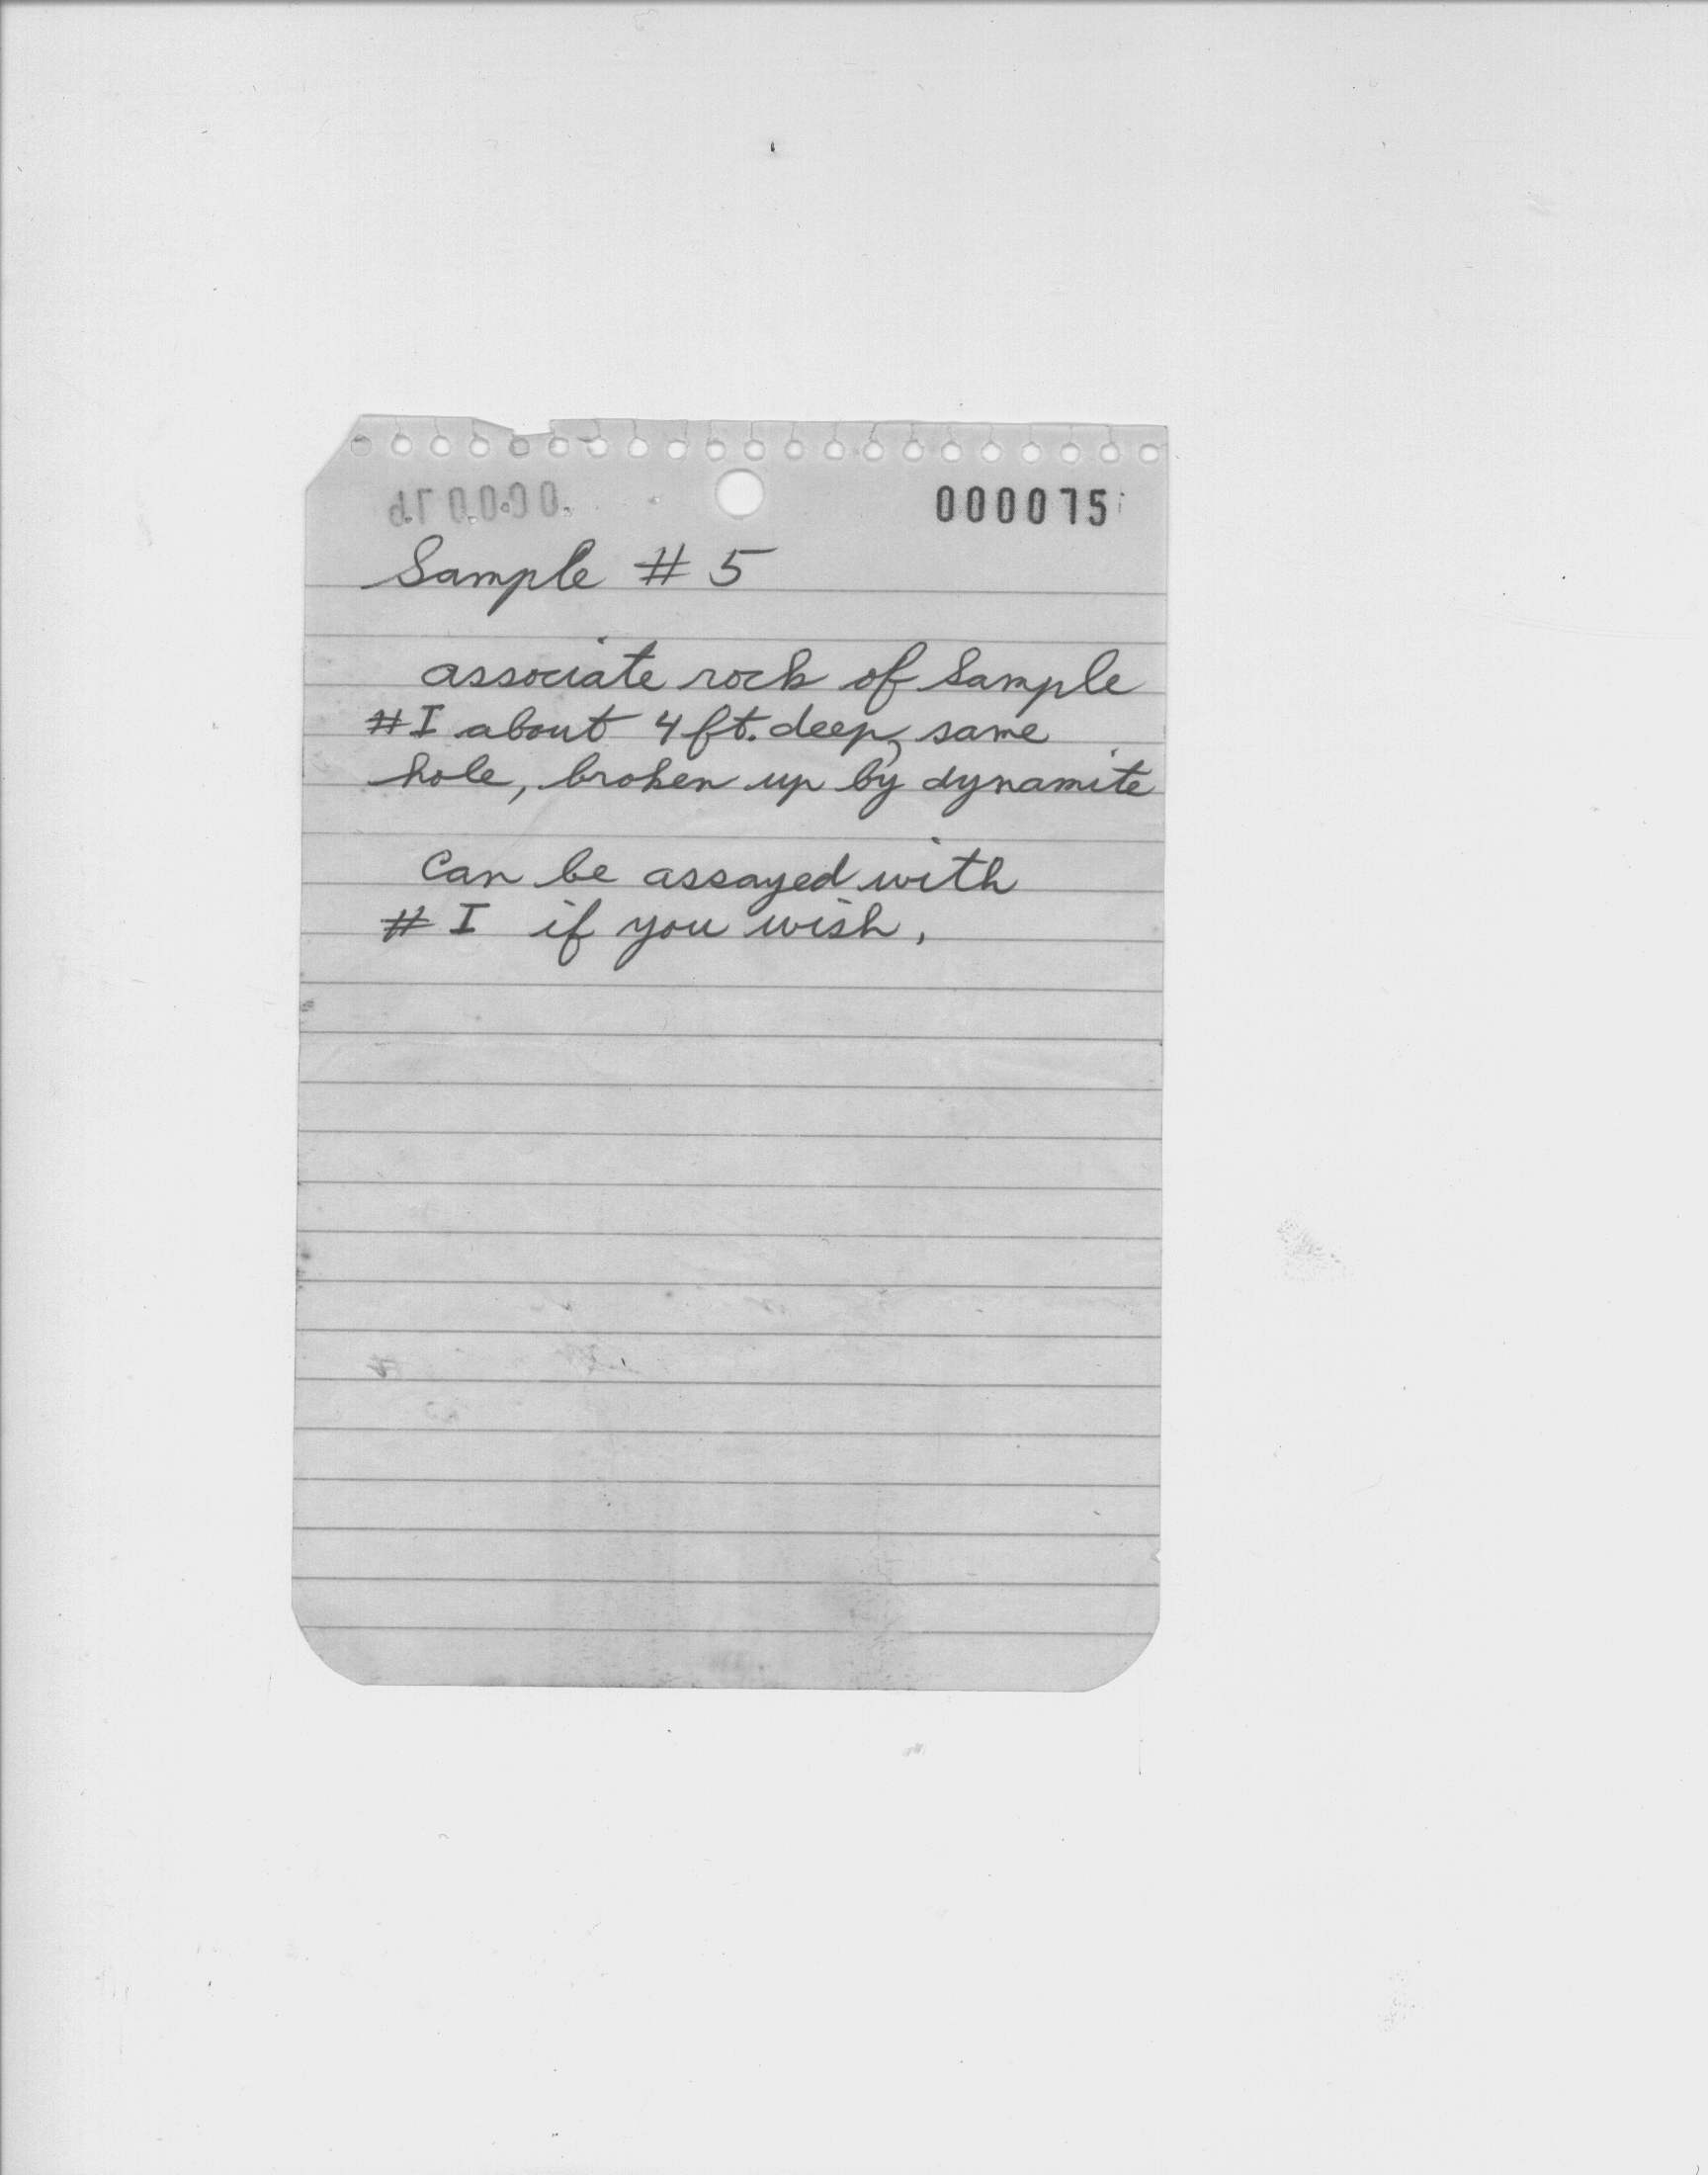 000075
Sample # 5
associate rock of Sample
# I about 4 ft. deep, same
hole, broken up by dynamite
Can be assayed with
# I if you wish.